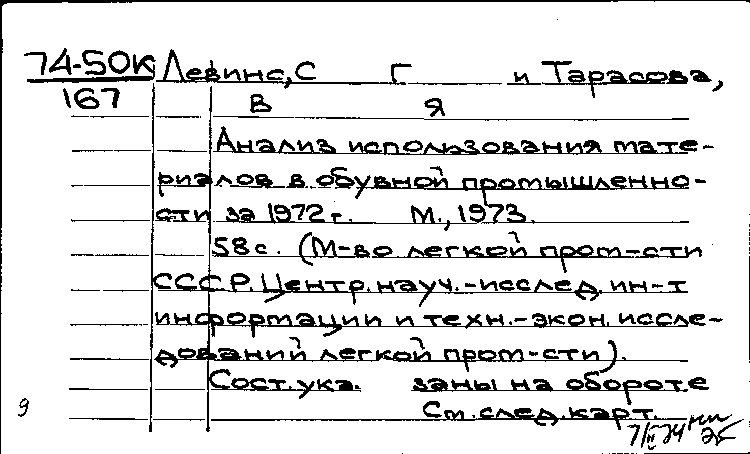 74-50К Левинс, С Г и Тарасова,
167 В Я
Анализ использования мате-
риалов в обувной промышленно-
сти за 1972 г. М., 1973.
58 с. (М-во легкой пром-сти
СССР. Центр. науч.-исслед. ин-т
информации и техн.-экон. иссле-
дований легкой пром-сти).
Сост. ука. заны на обороте
9 См. след. карт.
7/II 74